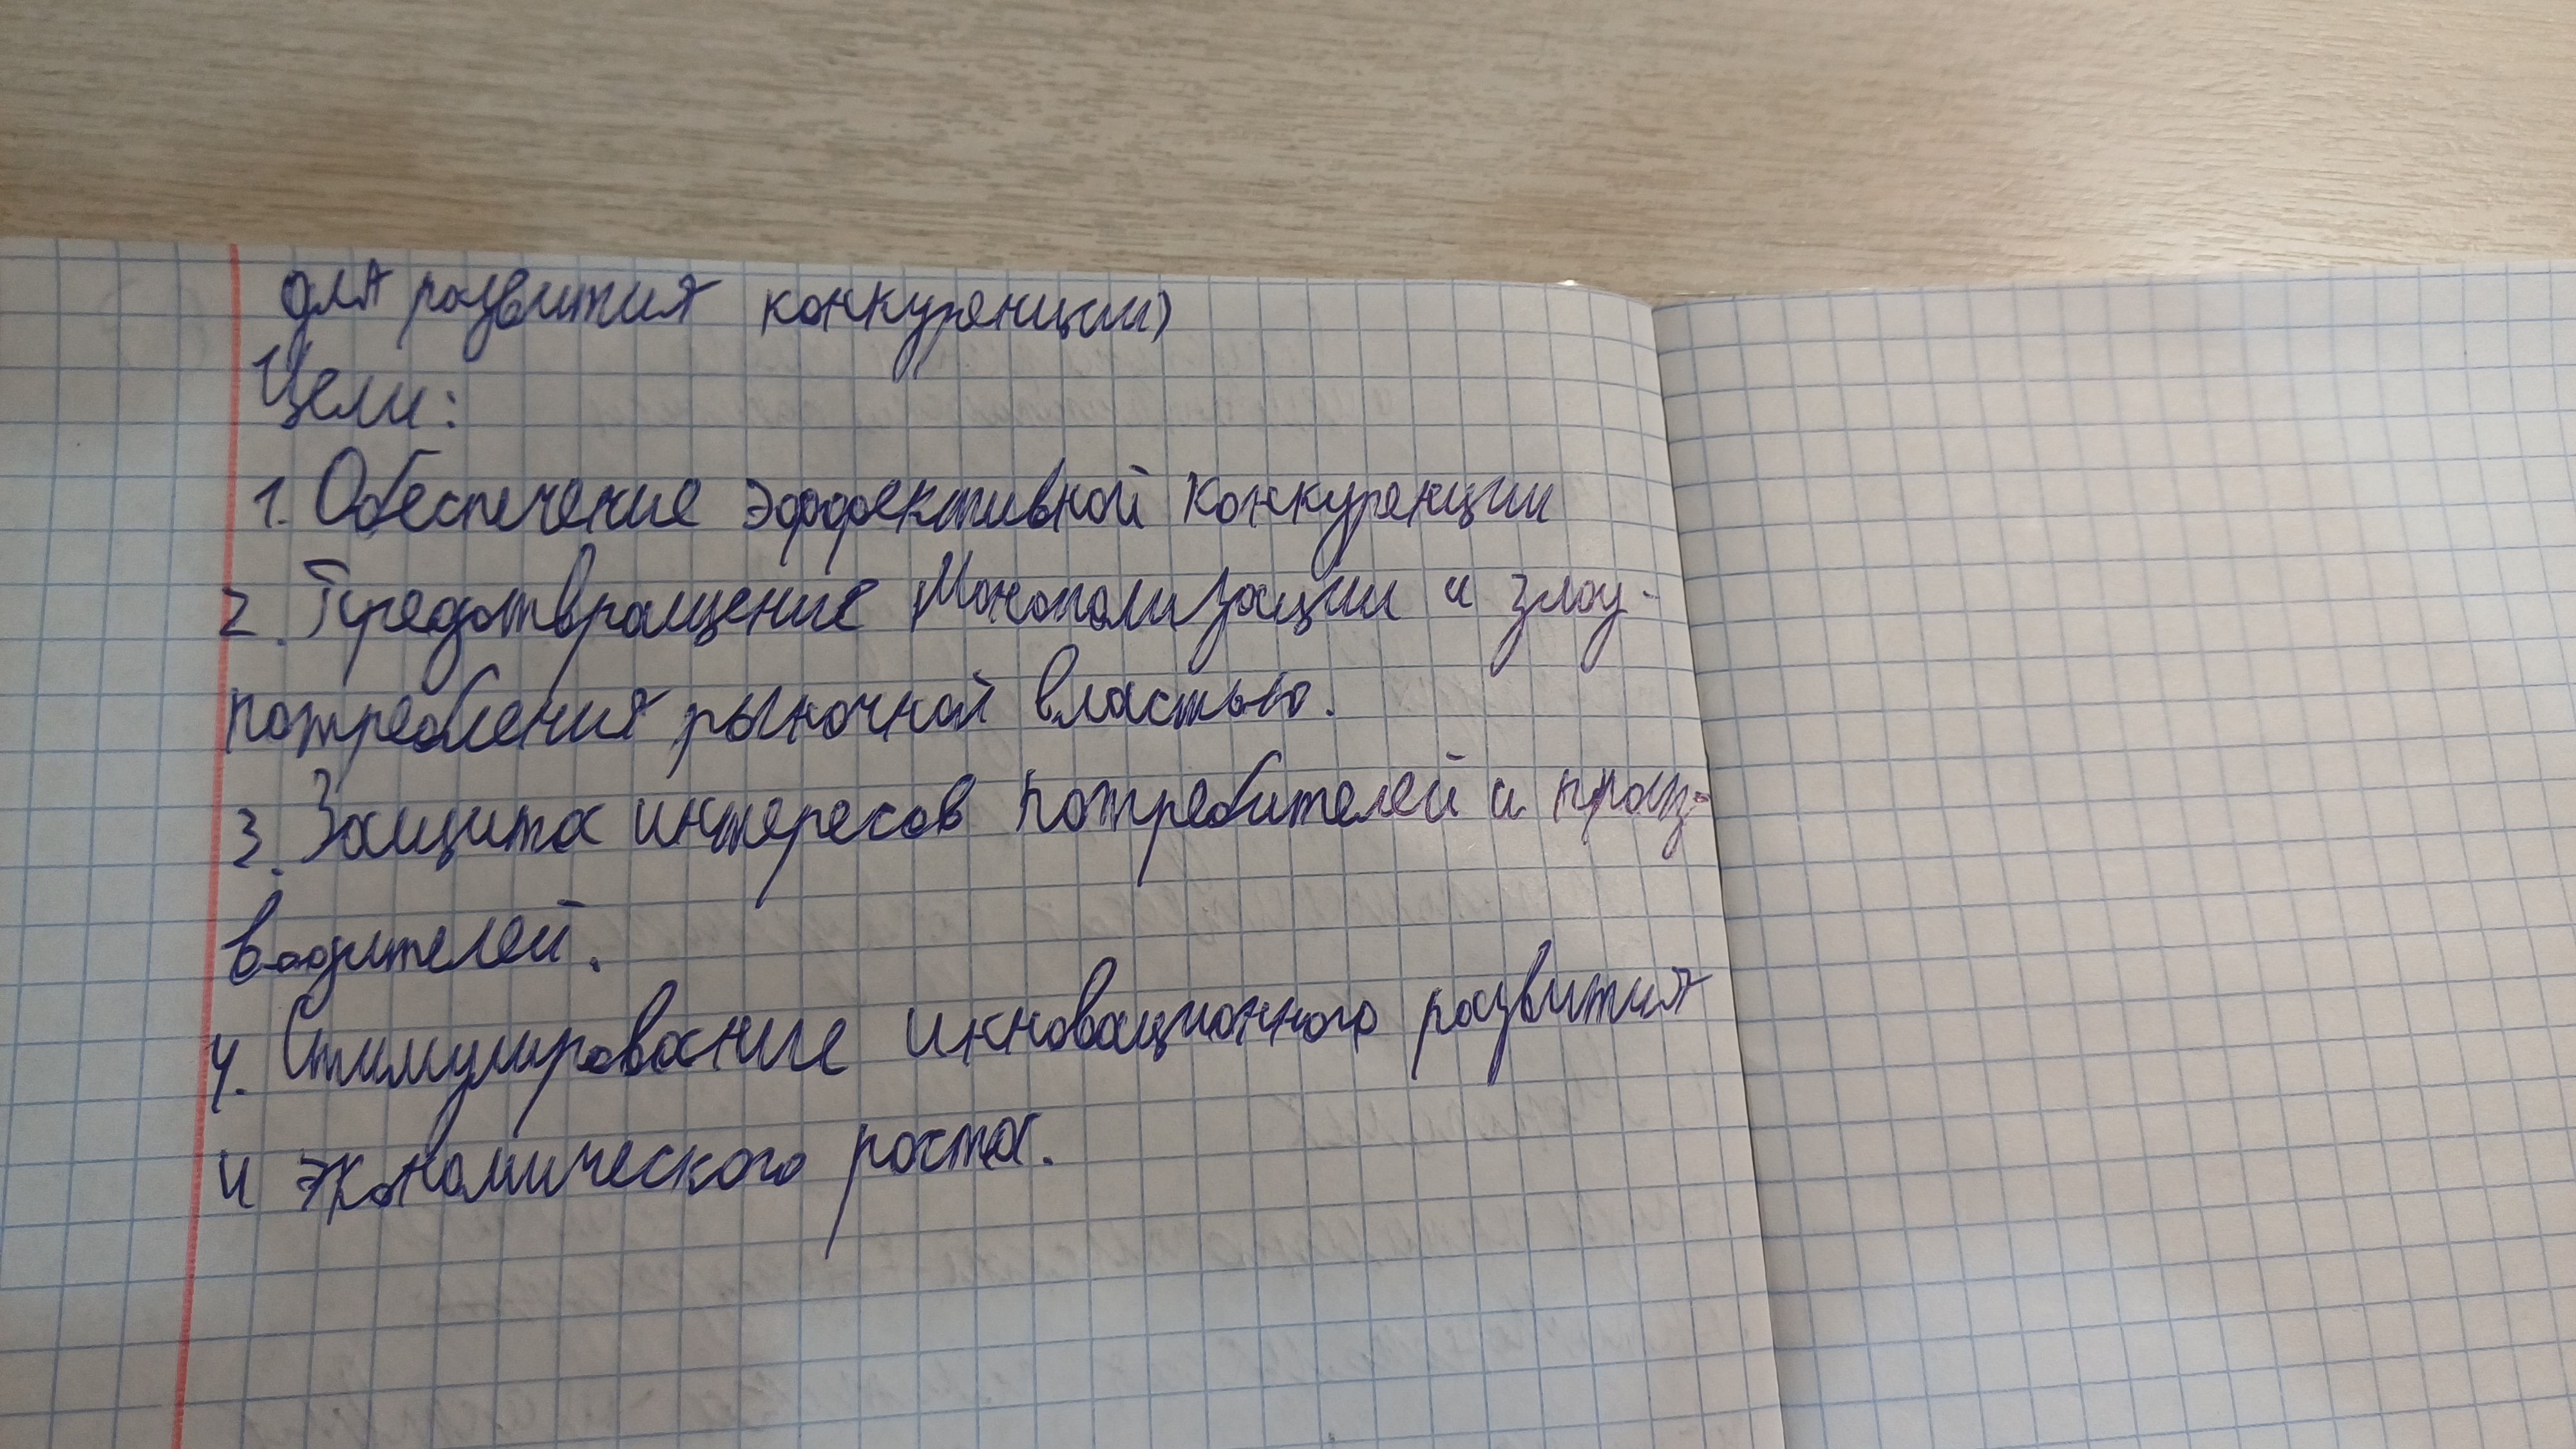 для развития конкуренции)
Цели:
1. Обеспечение эффективной конкуренции
2. Предотвращение Монополизации и злоу-
потребления рыночной властью.
3. Защита интересов потребителей и произ-
водителей.
4. Стимулирование инновационного развития
и экономического роста.